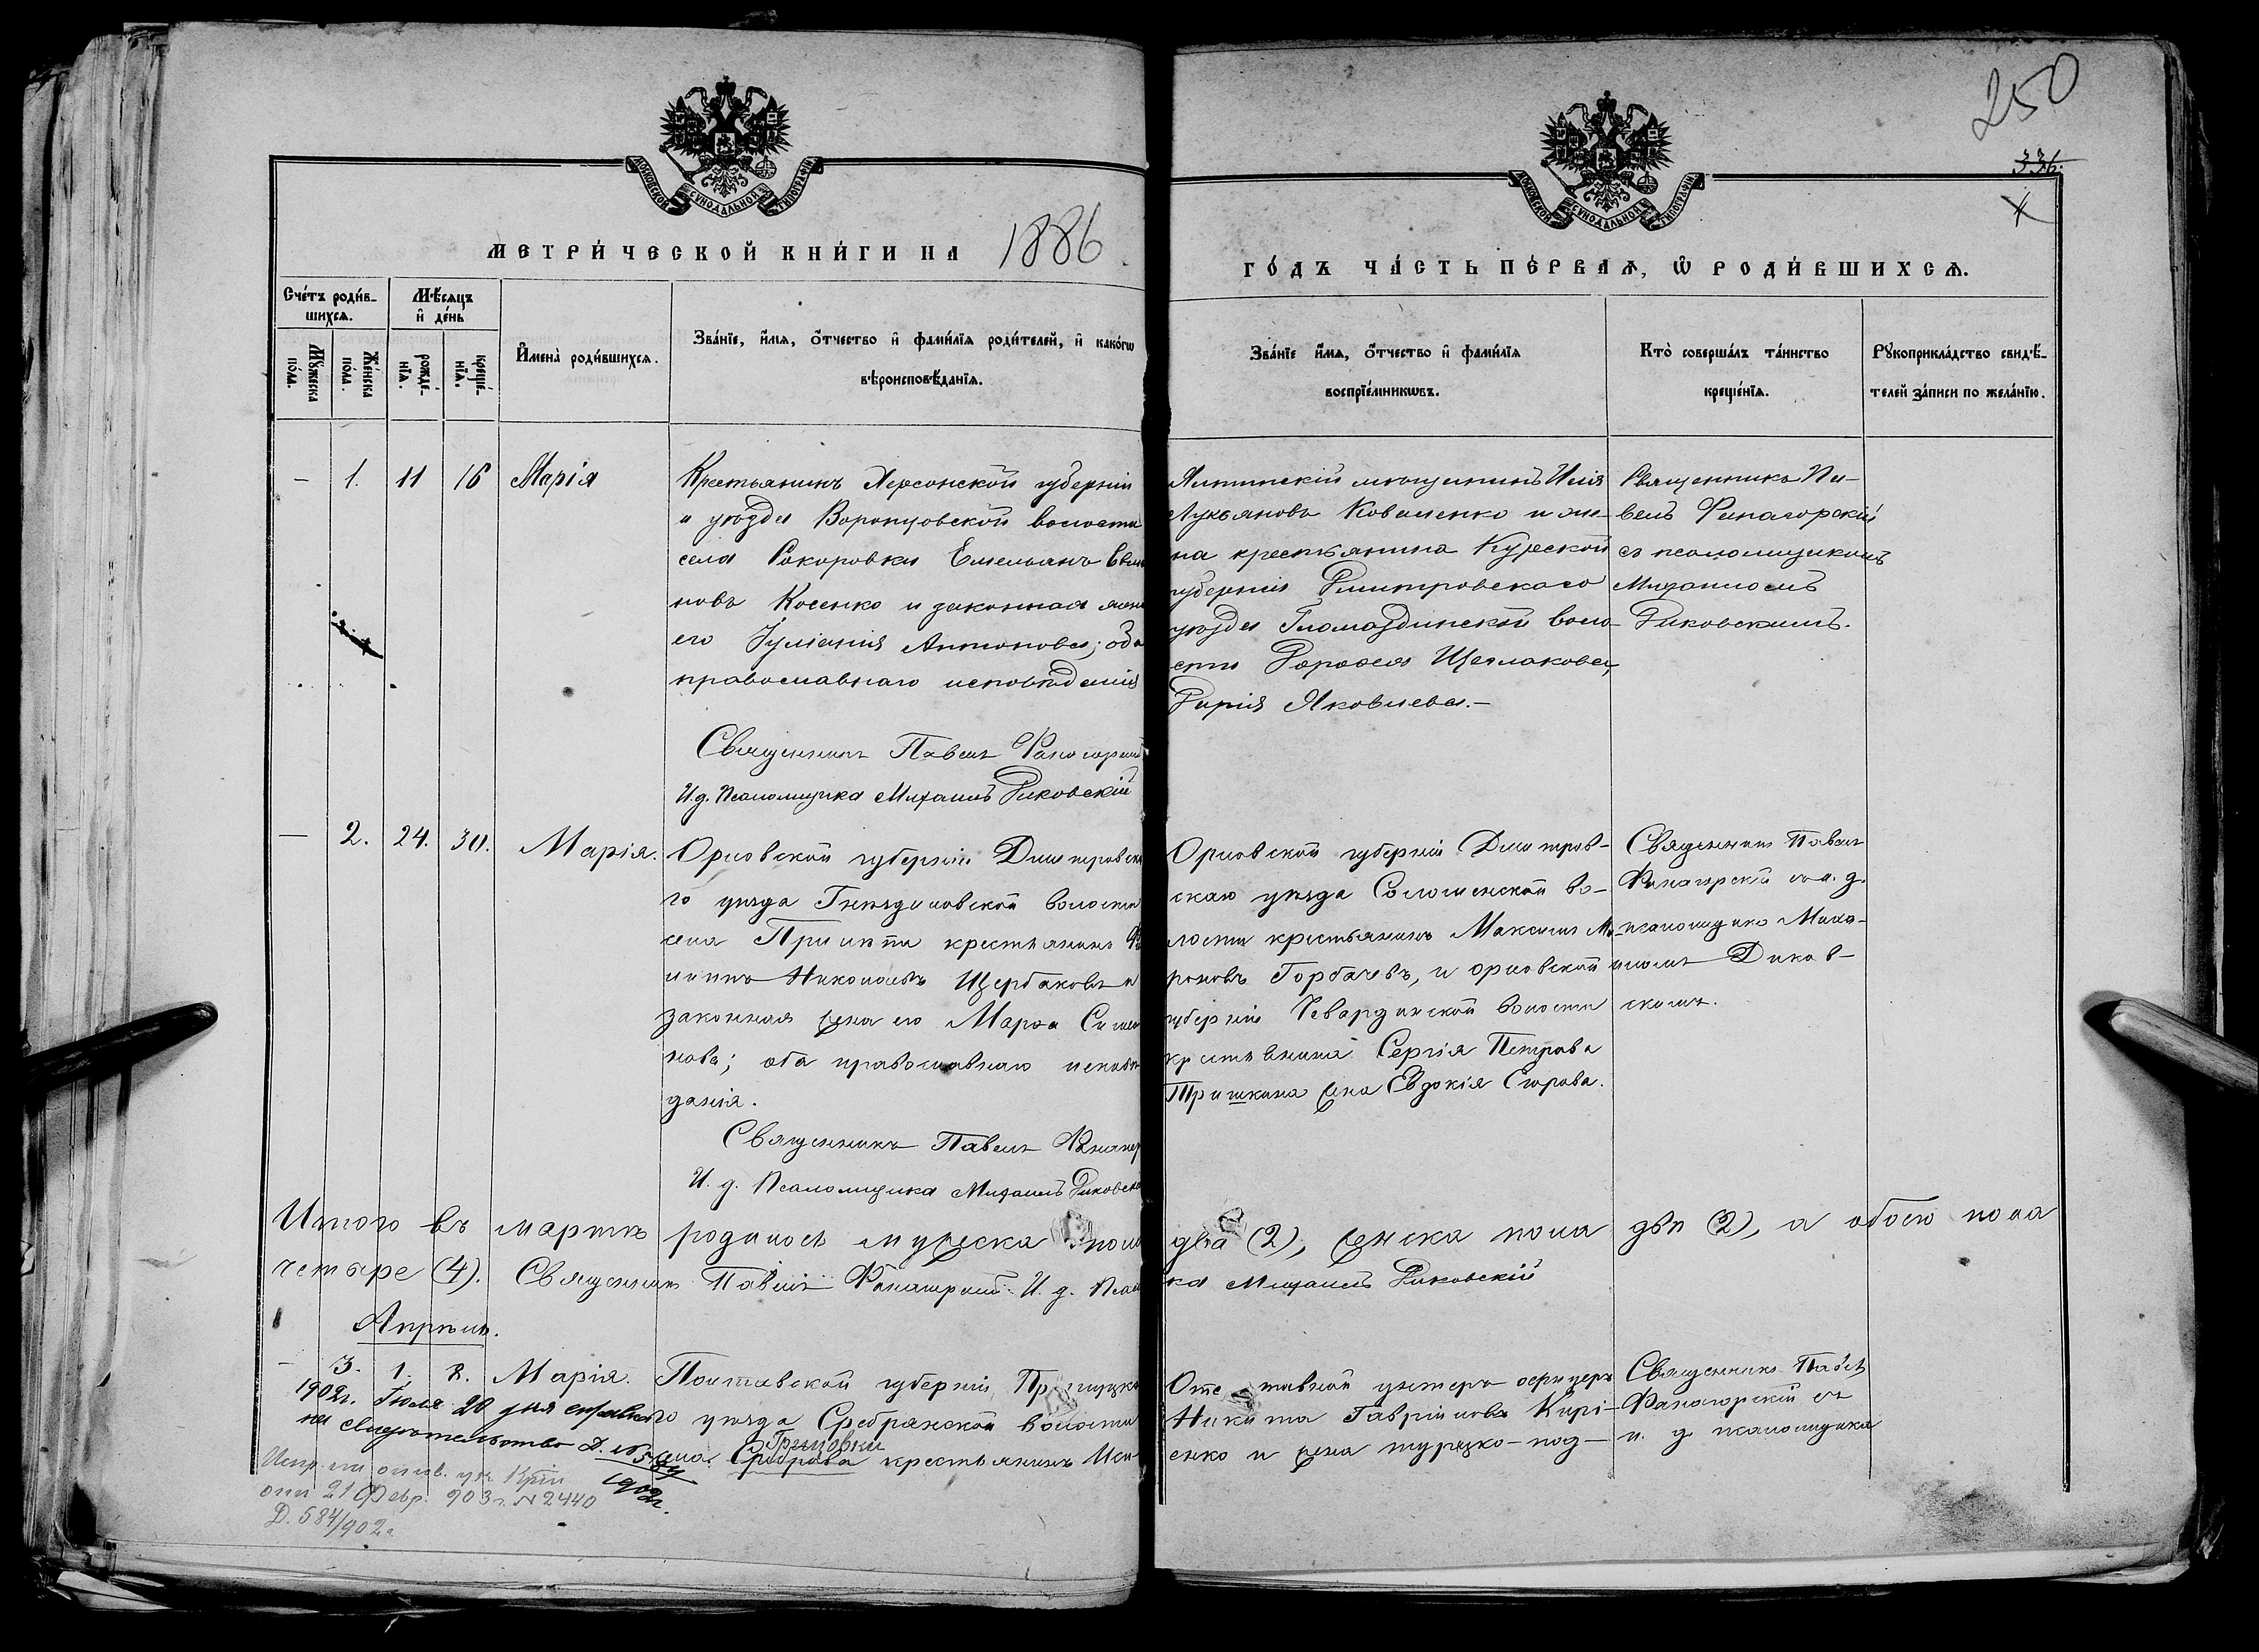 250
336.
МОСКОВСКОЙ СУНОДАЛЬНОЙ ТИПОГРАФІИ
МОСКОВСКОЙ СУНОДАЛЬНОЙ ТИПОГРАФІИ
МЕТРИ́ЧЕСКОЙ КНИ́ГИ НА 1886
ГО́ДЪ ЧА́СТЬ ПЕ́РВАЯ, Ѡ РОДИ́ВШИХСЯ.
Сче́тъ роди́в-
шихся.
Мꙋ́жеска
по́ла.
Же́нска
по́ла.
Мѣ́сяцъ
и де́нь
рожде́-
нїя.
креще́-
нїя.
И҆мена̀ роди́вшихся.
Зва́нїе, и҆́мя, ѻ҆́тчество и҆ фами́лїя роди́телей, и҆ како́гѡ
вѣроисповѣ́данїя.
Зва́нїе и҆́мя, ѻ҆́тчество и҆ фами́лїя
воспрїе́мникѡвъ.
Кто̀ соверша́лъ та́инство
креще́нїя.
Рꙋкоприкла́дство свидѣ́-
телей за́писи по жела́нїю.
– 1. 11 16 Марія
Крестьянинъ Херсонской губерніи
и уѣзда Воронцовской волости
села Емельянъ
новъ Косенко и законная жена
его Іуліанія Антонова; оба
православнаго исповѣданія
Священникъ Павелъ
И.д. Псаломщика Михаилъ Диковскій
Ялтинскій мѣщанинъ Илія
Лукьяновъ Коваленко и же-
на крестьянина Курской
губерніи Дмитровскаго
уѣзда воло-
сти Дороѳея Щеглакова,
Дарія Яковлева.–
Священникъ Па-
велъ Фанагорскій
съ псаломщикомъ
Михаиломъ
Диковскимъ.
– 2. 24. 30. Марія.
Орловской губерніи Дмитровска
го уѣзда Гнѣздиловской волости
села крестьянинъ Фи
липпъ Николаевъ Щербаковъ и
законная жена его Марѳа Симео
нова; оба православнаго исповѣ
данія.
Священникъ Павелъ
И. д. Псаломщика Михаилъ Диковскій
Орловской губерніи Дмитров-
скаго уѣзда Соломенской во-
лости крестьянинъ Максимъ Ми-
роновъ Горбачевъ, и орловской
губерніи Чевардинской волости
крестьянина Сергія Петрова
Тришкина жена Евдокія Егорова.
Священникъ Павелъ
Фанагорскій съ и. д.
псаломщика Миха-
иломъ Диков-
скимъ.
Итого въ мартѣ родилось мужеска пола два (2), женска пола двѣ (2), а обоего пола
четыре (4). Священникъ Павелъ Фанагорскій И. д. Псаломщи
ка Михаилъ Диковскій
Апрѣль.
– 3. 1. 2. Марія.
Полтавской губерніи, Прилуцка
го уѣзда Сребрянской волости
Грицовки
села Сребрява крестьянинъ
Отставной унтеръ офицеръ
Никита Гавріиловъ Кири-
енко и жена турецко-под-
Священникъ Павелъ
Фанагорскій съ
и. д. псаломщика
1902г. Іюля 20 дня
свидѣтельство Д. № 584
1902г.
21 Февр. 903 г. № 2440
Д. 584/902 г.